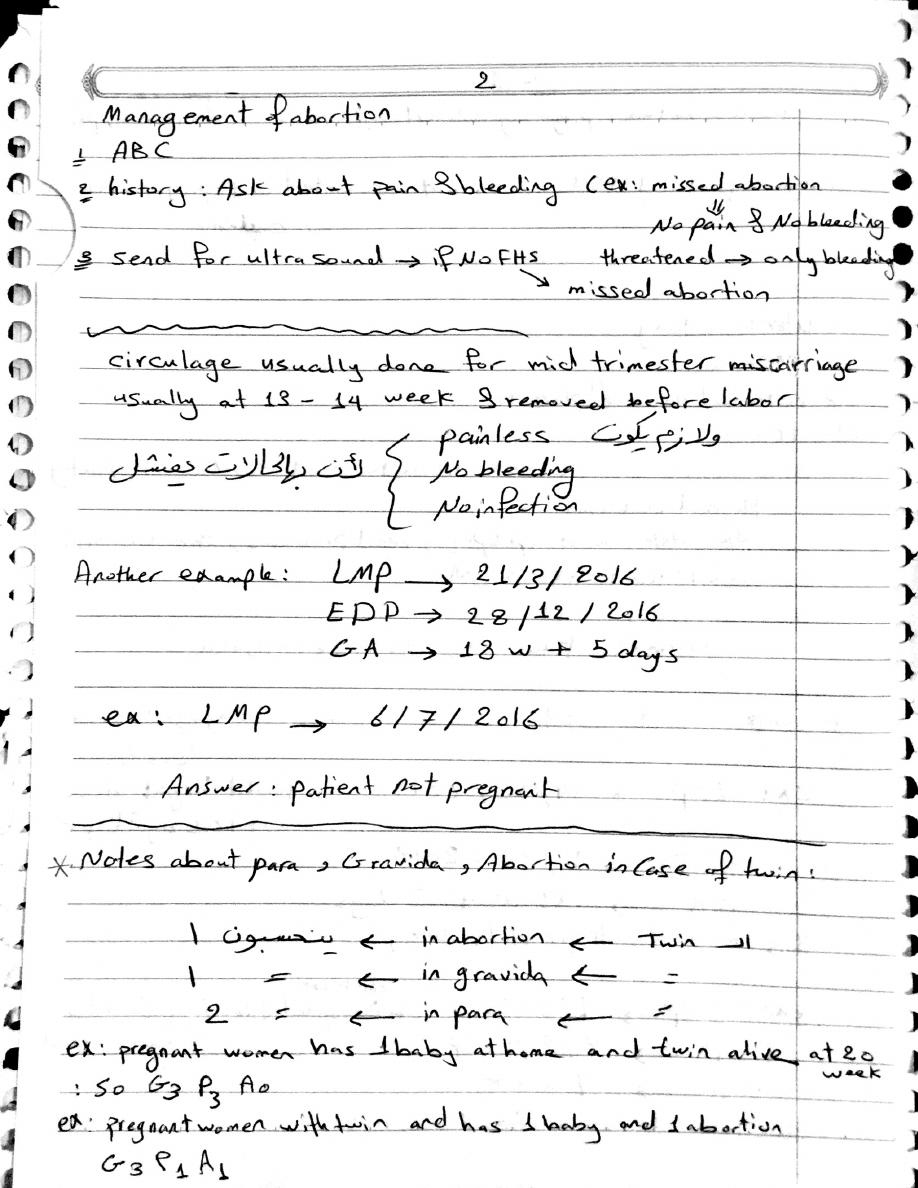 2
Management of abortion
1 ABC
2 history : Ask about pain & bleeding (ex: missed abortion
⇓
No pain & No bleeding
3 send for ultrasound → if No FHS threatened → only bleeding
↘ missed abortion
circulage usually done for mid trimester miscarriage
usually at 13 - 14 week & removed before labor
ولازم يكون painless
لأن بهالحالات بفشل { No bleeding
No infection
Another example: LMP → 21/3/2016
EDP → 28/12/2016
GA → 18 w + 5 days
ex: LMP → 6/7/2016
Answer: patient not pregnant
* Notes about para, Gravida, Abortion in Case of twin:
الـ Twin ← in abortion ← ينحسبون 1
= ← in gravida ← = 1
= ← in para ← = 2
ex: pregnant women has 1 baby at home and twin alive at 20 week
: So G3 P3 A0
ex: pregnant women with twin and has 1 baby and 1 abortion
G3 P1 A1